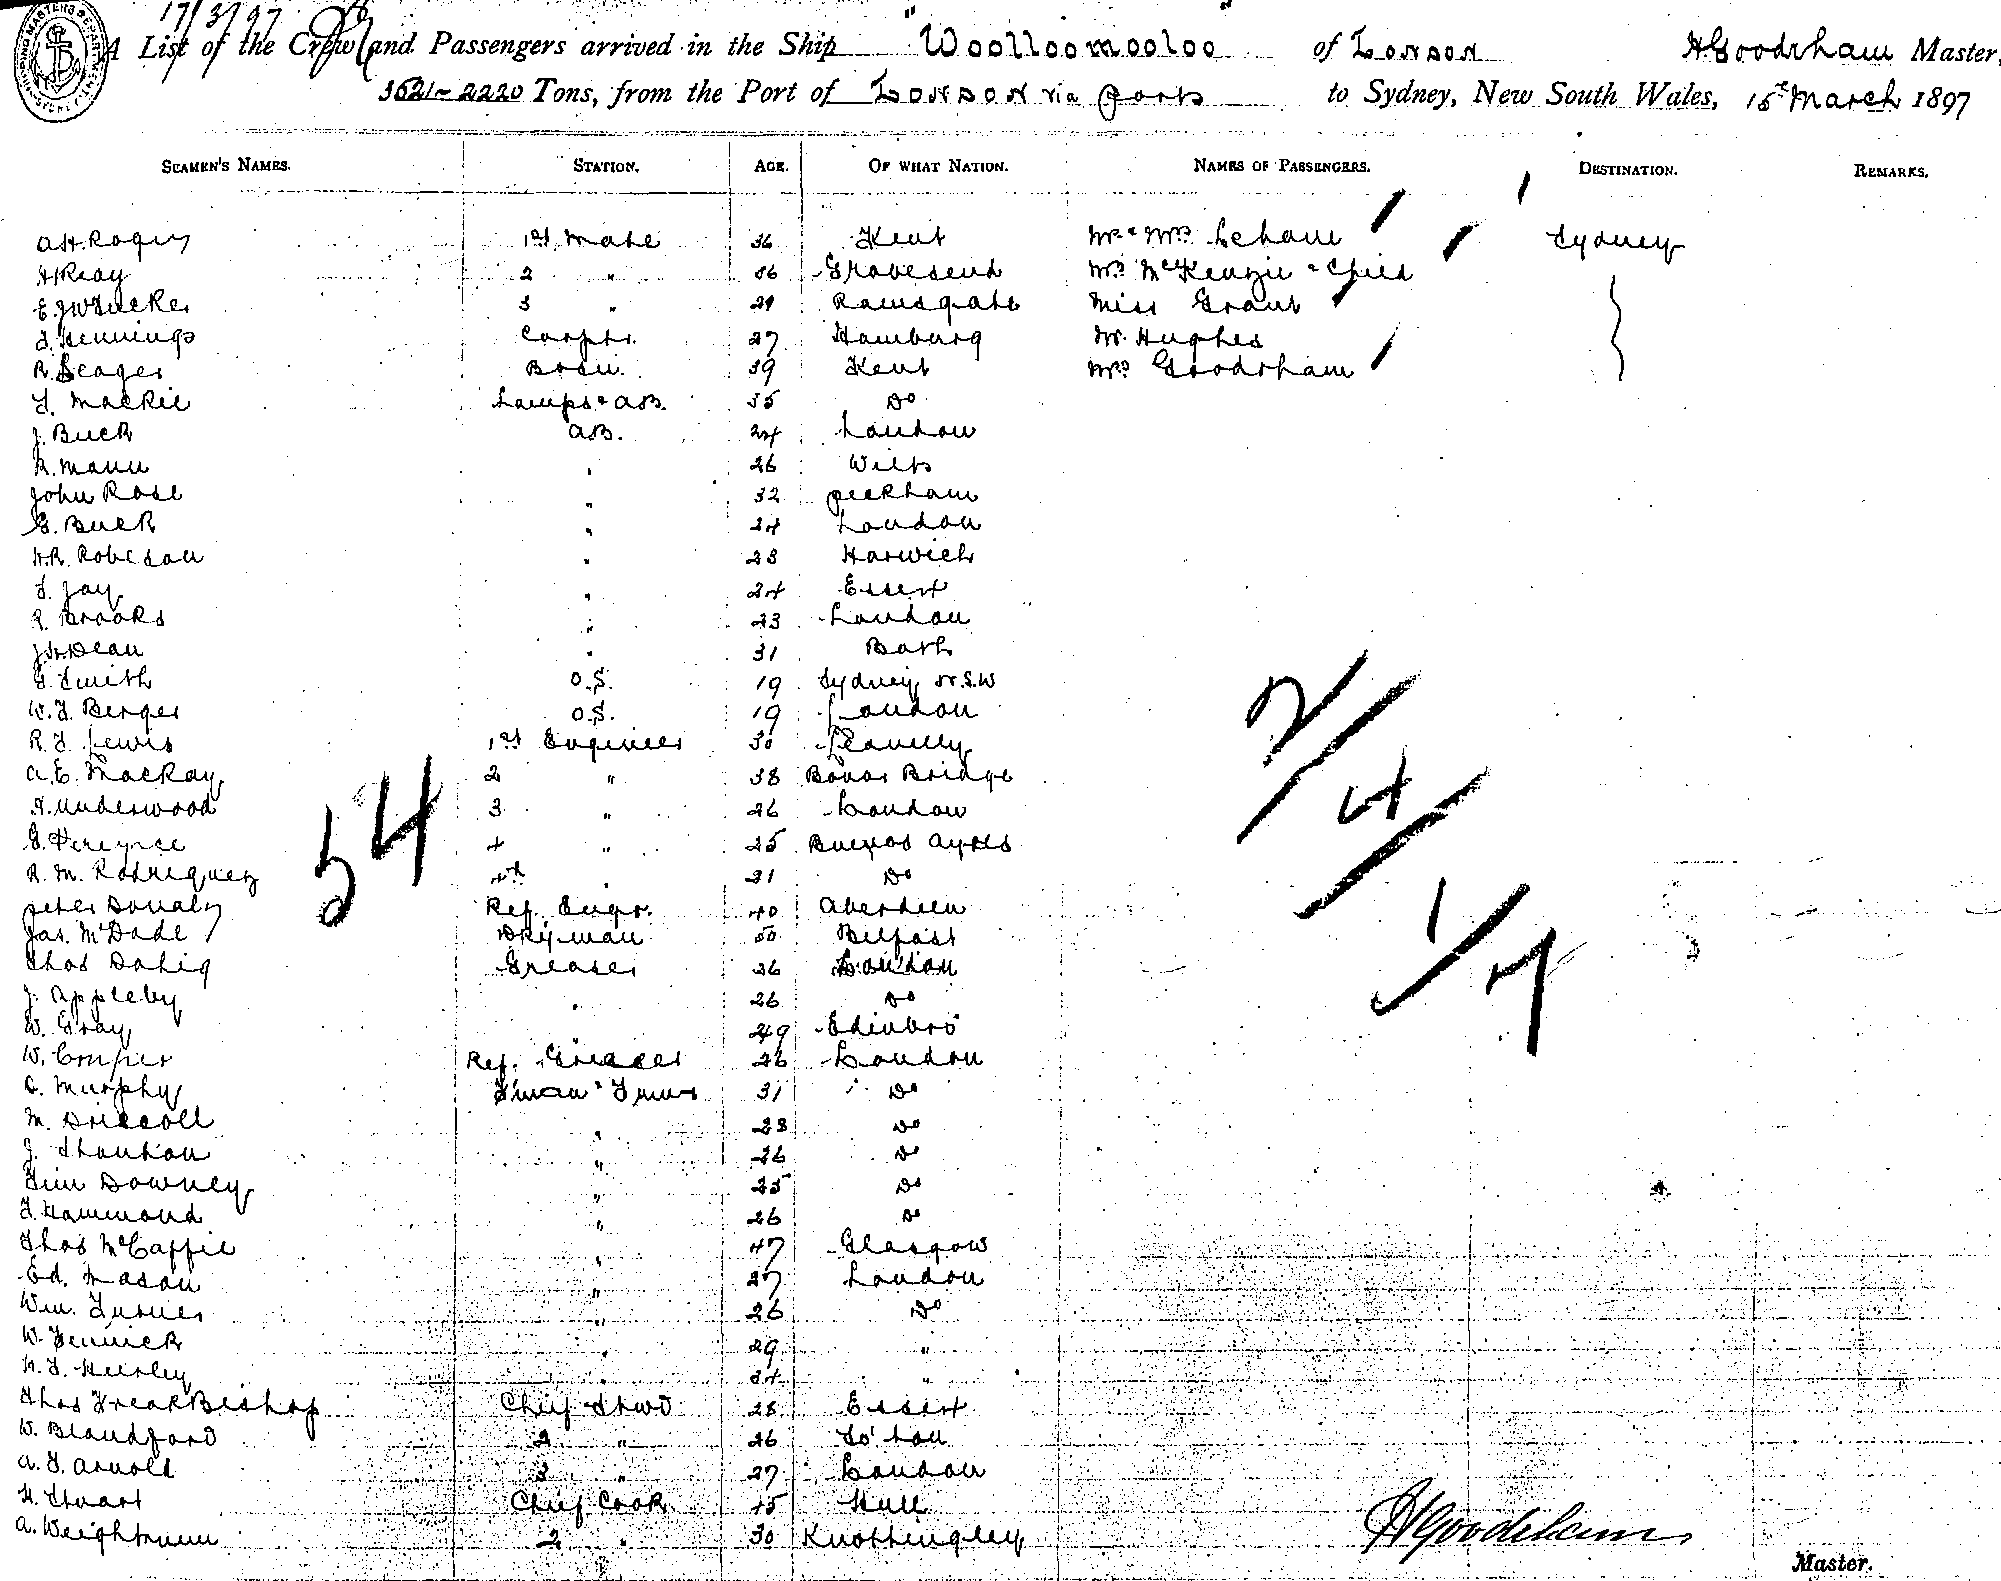 17/3/97
A List of the Crew and Passengers arrived in the Ship "Woolloomooloo" of London H Goodrham Master,
3521 - 2220 Tons, from the Port of London via Ports to Sydney, New South Wales, 15th March 1897
SEAMEN'S NAMES. STATION. AGE. OF WHAT NATION. NAMES OF PASSENGERS. DESTINATION. REMARKS.
1st Mate 36 Kent Mr & Mrs Lehane Sydney
H Reay 2 " 36 Gravesend Mrs McKenzie & Child
E.J.W Tucker 3 " 29 Ramsgate Miss Grant
Hennings Carptr. 27 Hamburg Mr. Hughes
R. Seager Bosn. 39 Kent Mrs Goodrham
Mackie Lamps & A.B. 35 Do
J. Buck A.B. 24 London
Mann " 26 Wilts
John Rose " 32 Peckham
G. Buck " 24 London
H.R. Robeson " 23 Harwich
Jay " 24 Essex
R. Brooks " 23 London
J.H. Dean " 31 Bath
Smith O.S. 19 Sydney N.S.W
W. F. Berger O.S. 19 London
Lewis 1st Engineer 30 Llanelly
A. E. Mackay 2 " 38 Bonar Bridge
Underwood 3 " 26 London
G. Pereyra 4 " 25 Buenos Ayres
R. M. Rodriguez 4th " 31 Do
Peter Donaly Ref. Engr. 40 Aberdeen
Jas. McDade Dkyman 50 Belfast
Thos Dahig Greaser 26 London
J. Appleby " 26 Do
W. Gray 49 Edinbro
W. Ref. Greaser 26 London
C. Murphy F'man & Trmr 31 Do
M. Driscoll " 23 Do
J. " 26 Do
Tim Downey " 25 Do
Hammond " 26 Do
Thos McCaffie " 47 Glasgow
Ed. Mason " 27 London
Wm. Turner " 26 Do
W. Fenwick " 29 "
Hurley " 24 "
Thos Freak Bishop Chief Stwd 28 Essex
W. Blandford 2 " 26 So'ton
A. F. Arnold 3 " 27 London
H. Stuart Chief Cook 45 Hull
A. Weightman 2 " 30 Knottingley
54
2/4/1/7
H Goodrham
Master.